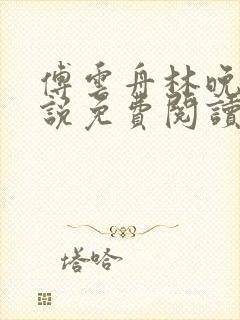 傅雲舟林晚
說免費閱讀
塔哈